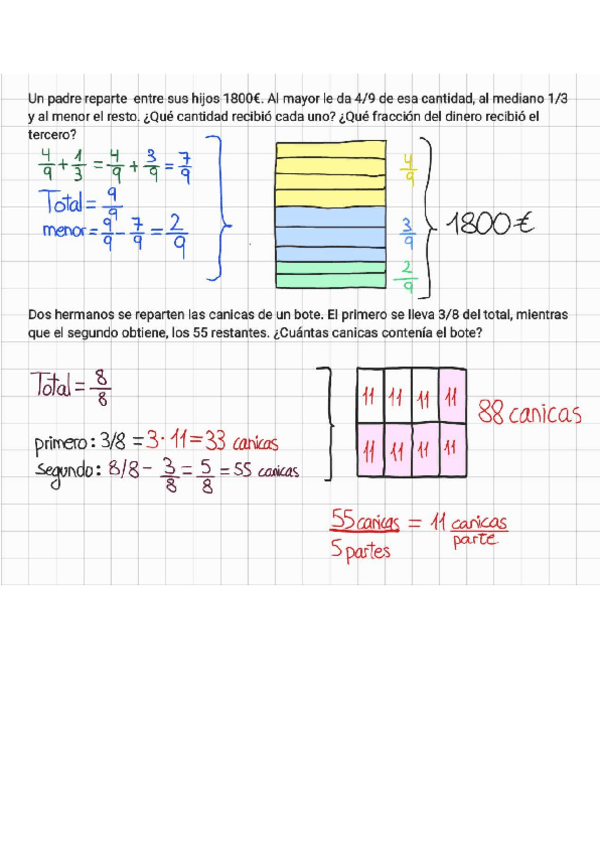 Un padre reparte entre sus hijos 1800€. Al mayor le da 4/9 de esa cantidad, al mediano 1/3
y al menor el resto. ¿Qué cantidad recibió cada uno? ¿Qué fracción del dinero recibió el
tercero?
4/9 + 1/3 = 4/9 + 3/9 = 7/9
Total = 9/9
menor = 9/9 - 7/9 = 2/9
4/9
3/9
2/9
1800€
Dos hermanos se reparten las canicas de un bote. El primero se lleva 3/8 del total, mientras
que el segundo obtiene, los 55 restantes. ¿Cuántas canicas contenía el bote?
Total = 8/8
primero: 3/8 = 3·11 = 33 canicas
segundo: 8/8 - 3/8 = 5/8 = 55 canicas
11 11 11 11
11 11 11 11
88 canicas
55 canicas / 5 partes = 11 canicas / parte